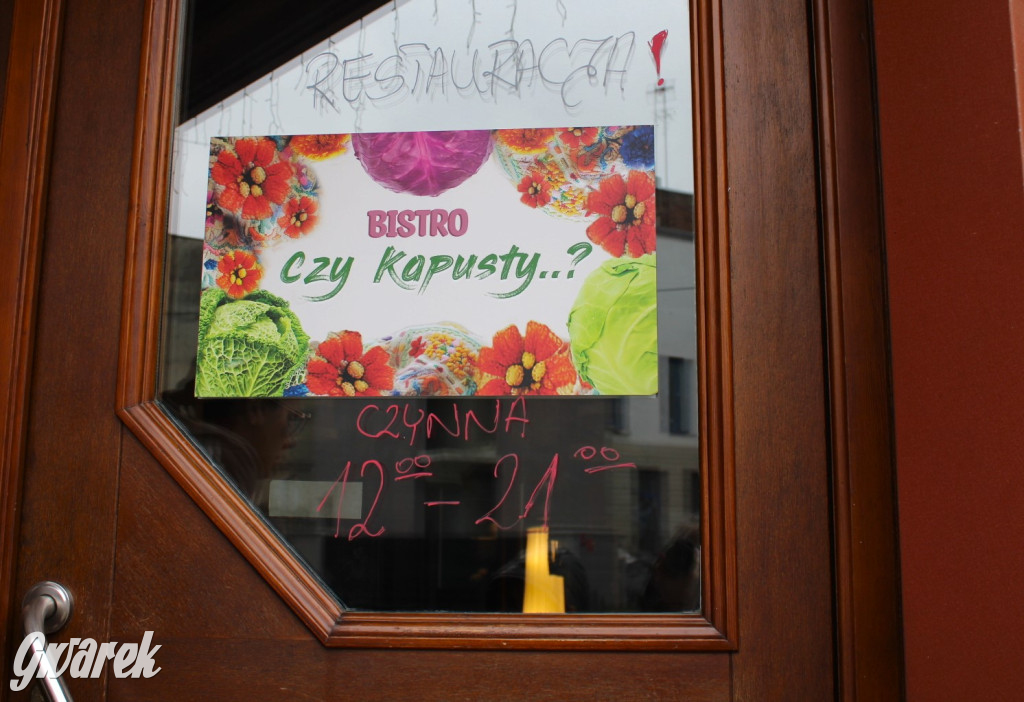 RESTAURACJA!
BISTRO
Czy Kapusty..?
CZYNNA
12⁰⁰ – 21⁰⁰
Gwarek